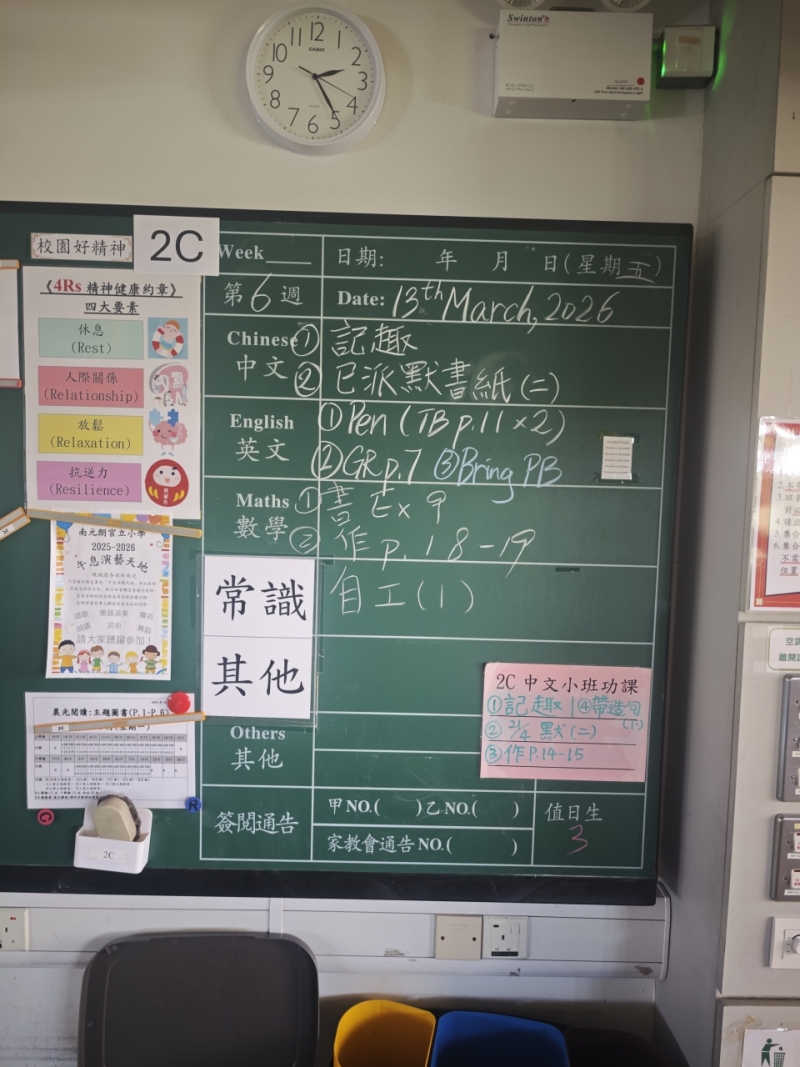 12
1
2
3
4
5
6
7
8
9
10
11
CASIO
Swinton
校園好精神
2C
Week
日期: 年 月 日(星期五)
第6週
Date: 13th March, 2026
《4Rs 精神健康約章》
四大要素
休息
(Rest)
人際關係
(Relationship)
放鬆
(Relaxation)
抗逆力
(Resilience)
Chinese
中文
① 記趣
② 已派默書紙(二)
English
英文
① Pen (TB p.11 x 2)
② GR p.7 ③ Bring PB
Maths
數學
① 書 E x 9
② 作 p. 18-19
常識
自工(1)
其他
南元朗官立小學
2025-2026
午息演藝天地
請大家踴躍參加!
晨光閱讀:主題圖書(P.1-P.6)
2C 中文小班功課
① 記趣 ④ 帶造句
(下)
② 2/4 默(二)
③ 作P.14-15
Others
其他
簽閱通告
甲NO.( )乙NO.( )
家教會通告NO.( )
值日生
3
R
2C